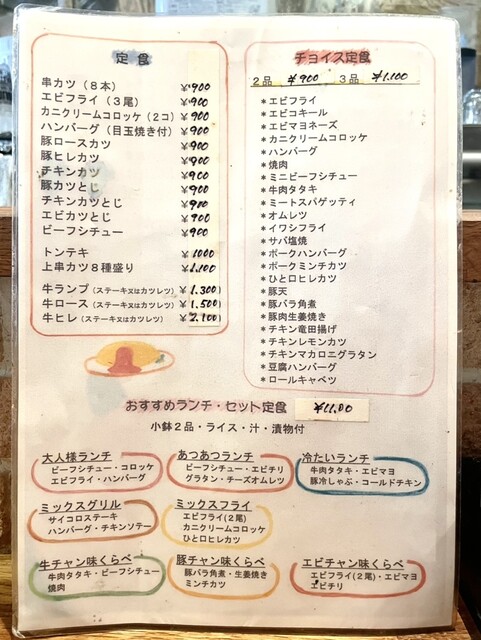 定食
串カツ（８本） ¥900
エビフライ（３尾） ¥900
カニクリームコロッケ（２コ） ¥900
ハンバーグ（目玉焼き付） ¥900
豚ロースカツ ¥900
豚ヒレカツ ¥900
チキンカツ ¥900
豚カツとじ ¥900
チキンカツとじ ¥900
エビカツとじ ¥900
ビーフシチュー ¥900
トンテキ ¥1000
上串カツ８種盛り ¥1,100
牛ランプ（ステーキ又はカツレツ） ¥1.300
牛ロース（ステーキ又はカツレツ） ¥1.500
牛ヒレ（ステーキ又はカツレツ） ¥2,100
チョイス定食
２品 ¥900 ３品 ¥1.100
＊エビフライ
＊エビコキール
＊エビマヨネーズ
＊カニクリームコロッケ
＊ハンバーグ
＊焼肉
＊ミニビーフシチュー
＊牛肉タタキ
＊ミートスパゲッティ
＊オムレツ
＊イワシフライ
＊サバ塩焼
＊ポークハンバーグ
＊ポークミンチカツ
＊ひと口ヒレカツ
＊豚天
＊豚バラ角煮
＊豚肉生姜焼き
＊チキン竜田揚げ
＊チキンレモンカツ
＊チキンマカロニグラタン
＊豆腐ハンバーグ
＊ロールキャベツ
おすすめランチ・セット定食 ¥1100
小鉢２品・ライス・汁・漬物付
大人様ランチ
ビーフシチュー・コロッケ
エビフライ・ハンバーグ
あつあつランチ
ビーフシチュー・エビチリ
グラタン・チーズオムレツ
冷たいランチ
牛肉タタキ・エビマヨ
豚冷しゃぶ・コールドチキン
ミックスグリル
サイコロステーキ
ハンバーグ・チキンソテー
ミックスフライ
エビフライ(２尾)
カニクリームコロッケ
ひと口ヒレカツ
牛チャン味くらべ
牛肉タタキ・ビーフシチュー
焼肉
豚チャン味くらべ
豚バラ角煮・生姜焼き
ミンチカツ
エビチャン味くらべ
エビフライ(２尾)・エビマヨ
エビチリ